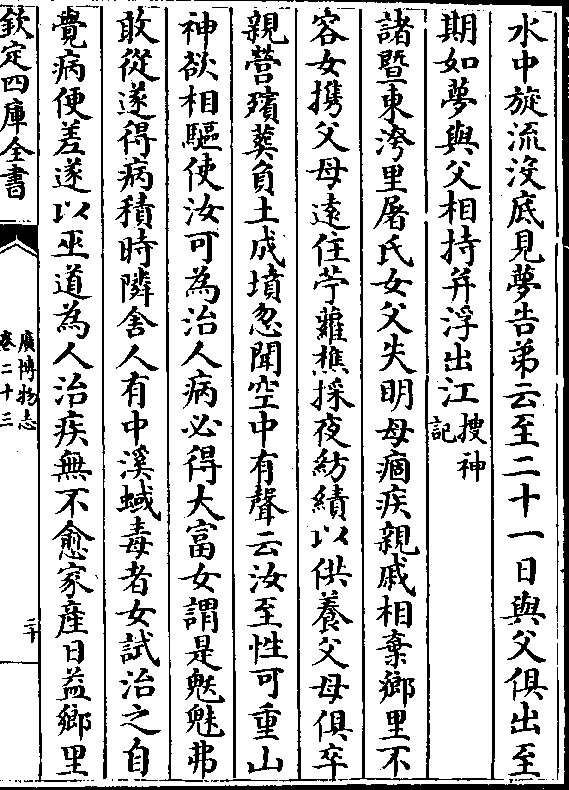 水中旋流没底見夢告弟云至二十一日與父俱出至
期如夢與父相持并浮出江搜神記
諸暨東洿里屠氏女父失明母痼疾親戚相棄鄉里不
容女攜父母遠住苧蘿樵採夜紡績以供養父母俱卒
親營殯葬負土成墳忽聞空中有聲云汝至性可重山
神欲相驅使汝可為治人病必得大富女謂是魑魅弗
敢從遂得病積時隣舍人有中溪蜮毒者女試治之自
覺病便差遂以巫道為人治疾無不愈家產日益鄉里
欽定四庫全書
廣博物志
卷二十三
二十